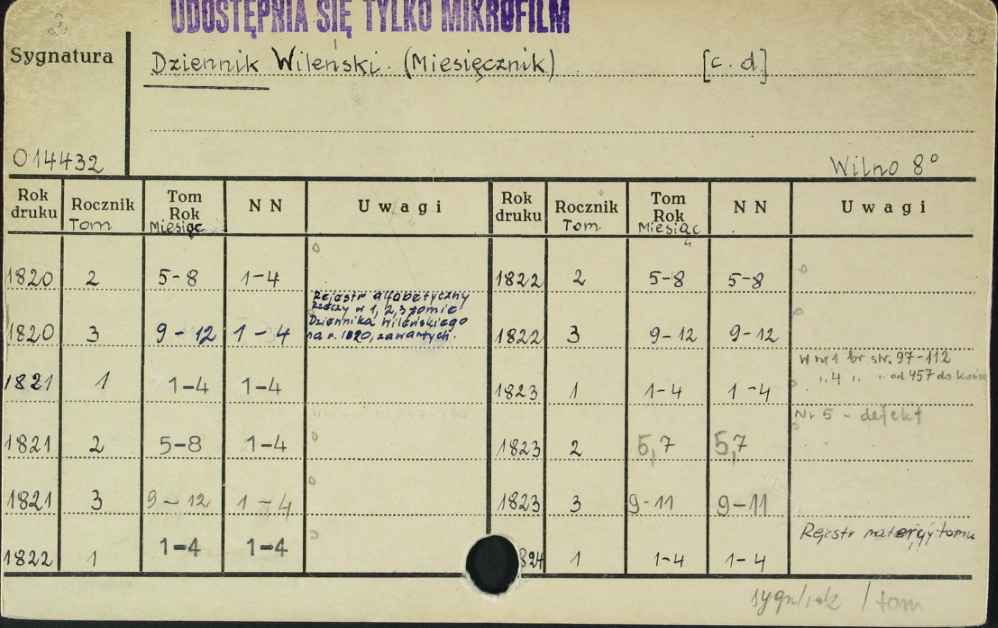 UDOSTĘPNIA SIĘ TYLKO MIKROFILM
Sygnatura Dziennik Wileński. (Miesięcznik) [c. d]
014432 Wilno 8°
Rok druku Rocznik Tom Tom Rok Miesiąc NN Uwagi Rok druku Rocznik Tom Tom Rok Miesiąc NN Uwagi
1820 2 5-8 1-4 1822 2 5-8 5-8
Rejestr alfabetyczny
rzeczy w 1, 2, 3 tomie
Dziennika Wileńskiego
na r. 1820, zawartych.
1820 3 9-12 1-4 1822 3 9-12 9-12
W nr 1 br str. 97-112
" 4 " " od 457 do końca
1821 1 1-4 1-4 1823 1 1-4 1-4
Nr 5 - defekt
1821 2 5-8 1-4 1823 2 5,7 5,7
1821 3 9-12 1-4 1823 3 9-11 9-11
Rejestr materyj tomu
1822 1 1-4 1-4 824 1 1-4 1-4
/ tom